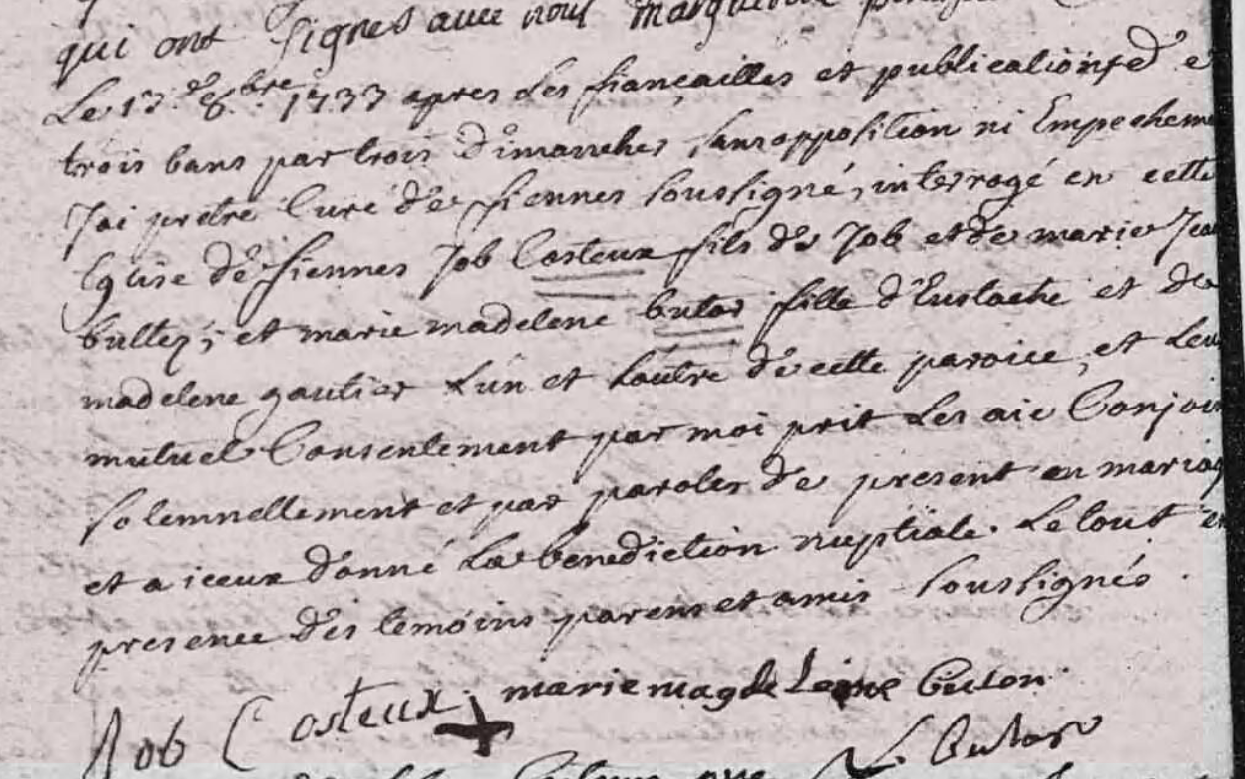 qui ont signes avec nous marguerite
Le 13 d 8bre 1733 apres Les fiançailles et publications de
trois bans par trois Dimanches, sans opposition ni Empecheme
J'ai pretre Curé de fiennes soussigné, interrogé en cette
Eglise de fiennes Job Costeux fils de Job et de marie Jea
bultez; et marie madelene butor fille d'Eustache et de
madelene gautier L'un et L'autre de cette paroice, et Leu
mutuel Consentement par moi prit Les aie Conjoin
solemnellement et par paroles de present en mariag
et a iceux donné La benediction nuptiale. Le tout en
presence des temoins parens et amis soussignés.
Job Costeux + marie magdeleine Buton
Butor